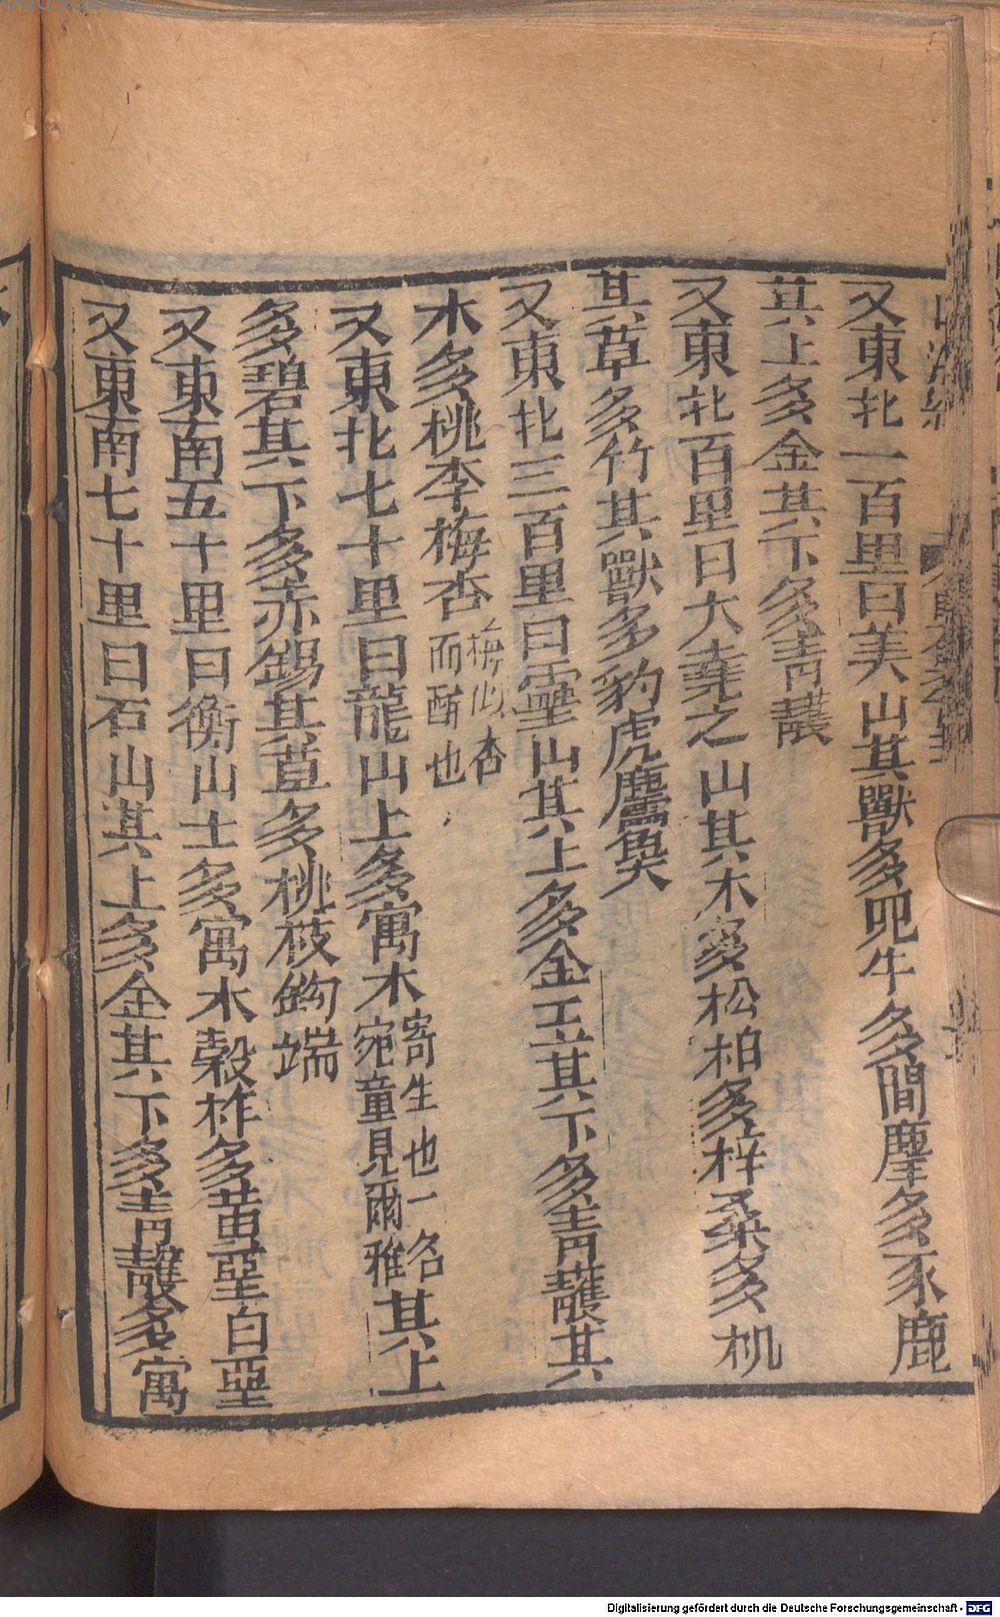 山海經
又東北一百里曰美山其獸多兕牛多閭麈多豕鹿
其上多金其下多青雘
又東北百里曰大堯之山其木多松柏多梓桑多机
其草多竹其獸多豹虎麢㚟
又東北三百里曰靈山其上多金玉其下多青雘其
木多桃李梅杏梅似杏
而酢也
又東北七十里曰龍山上多寓木寄生也一名
宛童見爾雅其上
多碧其下多赤錫其草多桃枝鉤端
又東南五十里曰衡山上多寓木穀柞多黃堊白堊
又東南七十里曰石山其上多金其下多青雘多寓
Digitalisierung gefördert durch die Deutsche Forschungsgemeinschaft - DFG